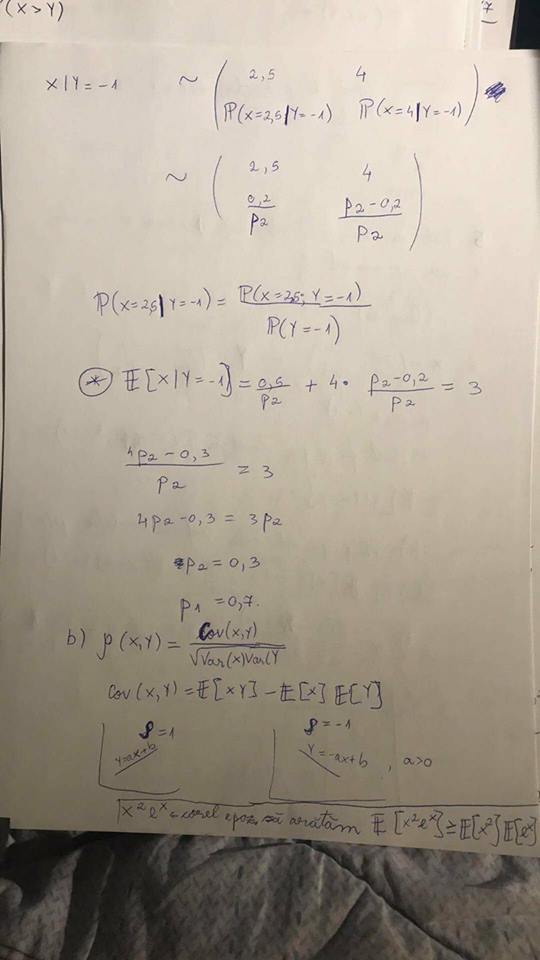 (X > Y)
7
X | Y = -1 ~ ( 2,5 4
P(X=2,5 | Y=-1) P(X=4 | Y=-1) )
~ ( 2,5 4
0,2/p2 p2-0,2/p2 )
P(X=2,5 | Y=-1) = P(X=2,5; Y=-1) / P(Y=-1)
(*) E[X | Y=-1] = 0,5/p2 + 4 · p2-0,2/p2 = 3
4p2 - 0,3 / p2 = 3
4p2 - 0,3 = 3p2
p2 = 0,3
p1 = 0,7.
b) ρ(X,Y) = Cov(X,Y) / √Var(X)Var(Y
Cov(X,Y) = E[XY] - E[X] E[Y]
ρ = 1 ρ = -1
Y=ax+b Y=-ax+b , a>0
x²eˣ corel epoz. să arătăm E[x²eˣ] ≥ E[x²] E[eˣ]